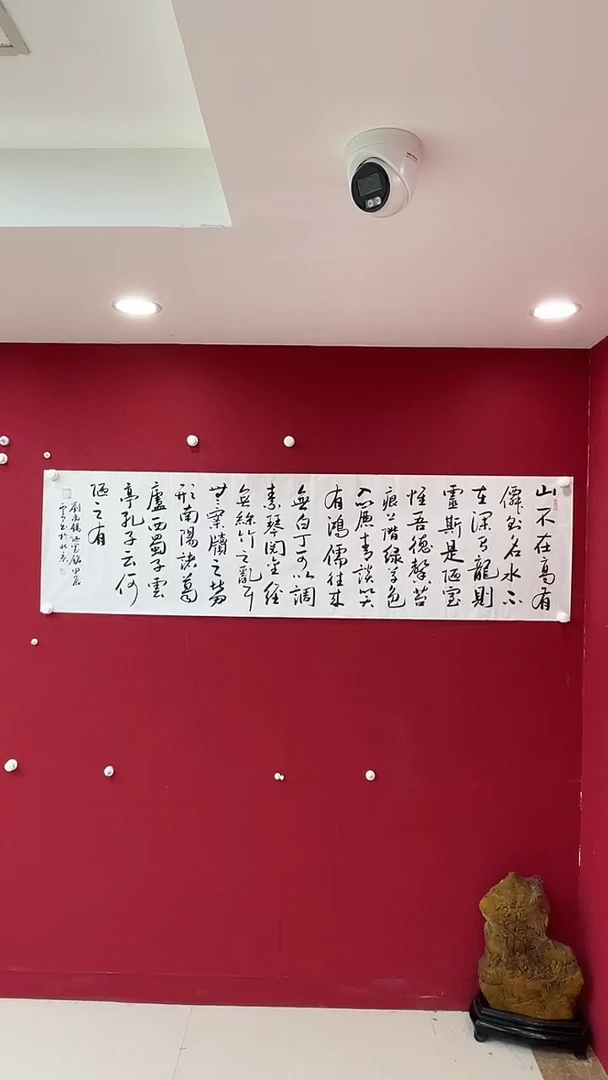 山不在高有
僊則名水不
在深有龍則
靈斯是陋室
惟吾德馨苔
痕上階綠草色
入簾青談笑
有鴻儒往來
無白丁可以調
素琴閱金經
無絲竹之亂耳
無案牘之勞
形南陽諸葛
廬西蜀子雲
亭孔子云何
陋之有
劉禹錫陋室銘甲辰
書於北京